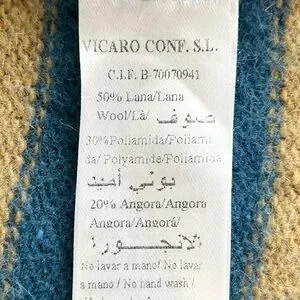 VICARO CONF. S.L.
C.I.F. B-70070941
50% Lana/Lana
Wool/Là/ صوف
30% Poliamida/Poliami
da/ Polyamide/Poliamida
بولي أميد
20% Angora/Angora
Angora/Angorá/
الانجورا
No lavar a mano/ No lavar
a mano / No hand wash /